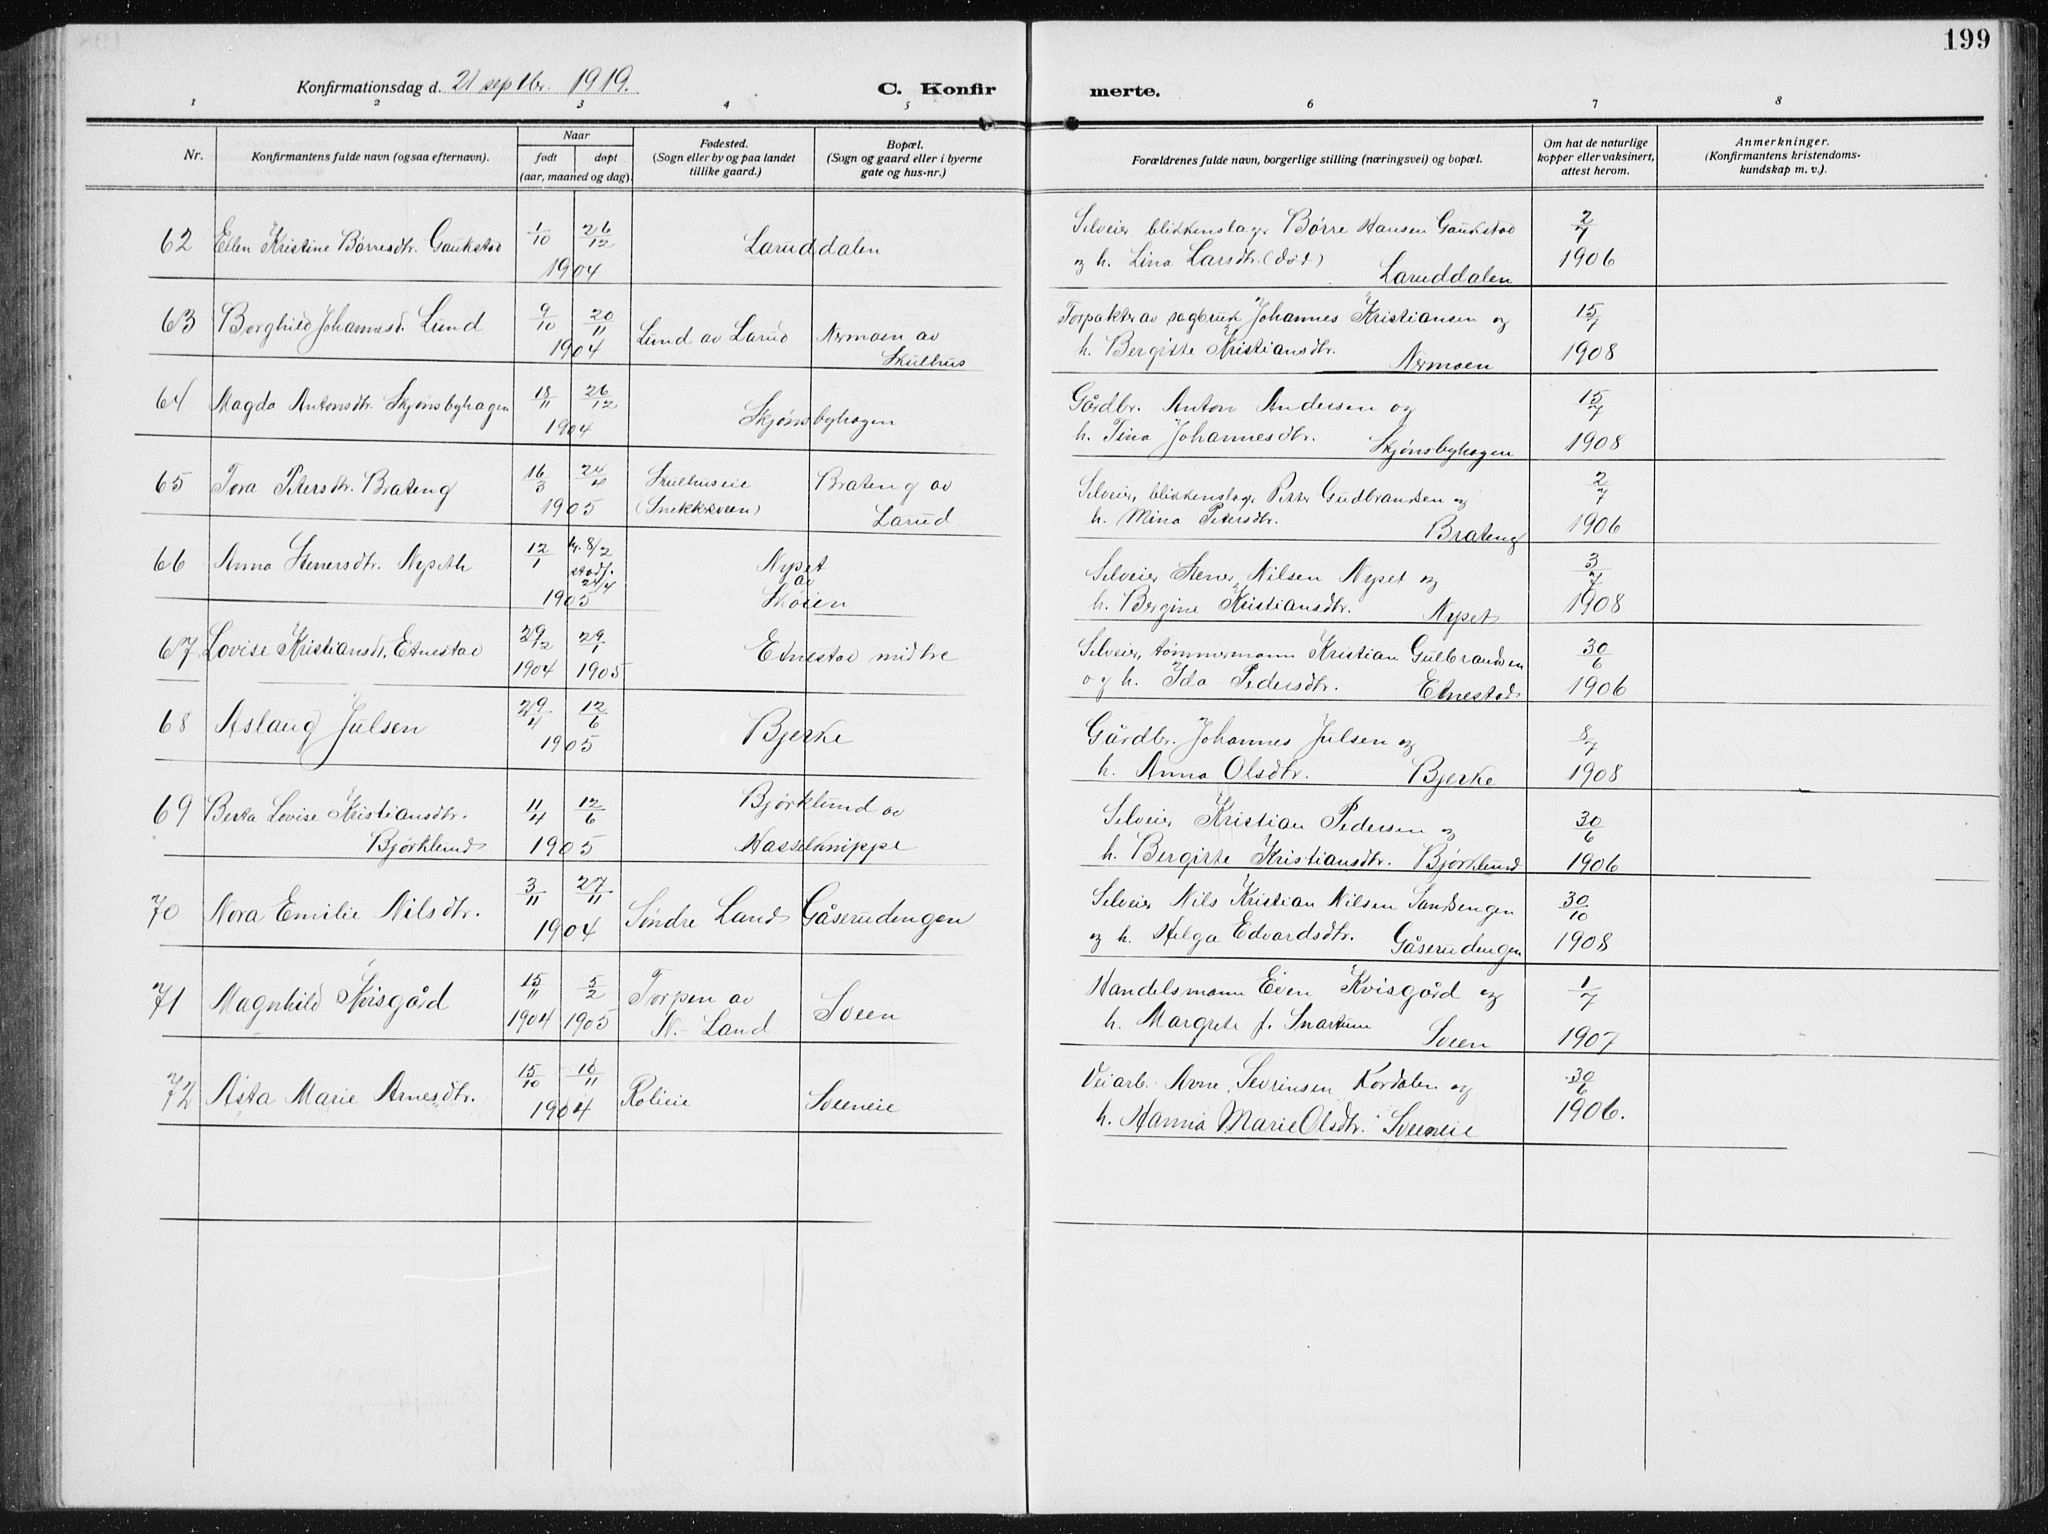 199
Konfirmationsdag d. 21 septbr. 1919.
C. Konfirmerte.
1 2 3 4 5 6 7 8
Nr.
Konfirmantens fulde navn (ogsaa efternavn).
Naar
født døpt
(aar, maaned og dag).
Fødested.
(Sogn eller by og paa landet
tillike gaard.)
Bopæl.
(Sogn og gaard eller i byerne
gate og hus-nr.)
Forældrenes fulde navn, borgerlige stilling (næringsvei) og bopæl.
Om hat de naturlige
kopper eller vaksinert,
attest herom.
Anmerkninger.
(Konfirmantens kristendoms-
kundskap m. v.).
62 Ellen Kristine Børresdtr. Gaukstad 1/10 26/12 1904 Laruddalen
Selveier blikkenslager Børre Hansen Gaukstad 2/7
og h. Lina Larsdtr. (død) Laruddalen 1906
63 Borghild Johannesd. Lund 9/10 20/11 1904 Lund av Larud Nermoen av
Skulhus
Forpakter av sagbruk Johannes Kristiansen og 15/7
h. Bergitte Kristiansdtr. Nermoen 1908
64 Magda Antonsdtr. Skjønsbyhagen 18/11 26/12 1904 Skjønsbyhagen
Gårdbr. Anton Andersen og 15/7
h. Tina Johannesdtr. Skjønsbyhagen 1908
65 Tora Petersdtr. Brateng 16/3 24/4 1905 Skulhuseie Brateng av
(Snekksveen) Larud
Selveier, blikkenslager Petter Gudbrandsen og 2/7
h. Mina Petersdtr. Brateng 1906
66 Anna Stenersdtr. Nypeth 12/1 hj. 8/2
stadf.
24/4
1905 Nypet
av
Skøien
Selveier Stener Nilsen Nypet og 3/7
h. Bergine Kristiansdtr. Nypet 1908
67 Lovise Kristiansdtr. Etnestad 29/12 29/1
1904 1905 Etnestad midtre
Selveier, tømmermann Kristian Gulbrandsen 30/6
og h. Ida Pedersdtr. Etnestad 1906
68 Aslaug Julsen 29/4 12/6 1905 Bjerke
Gårdbr. Johannes Julsen og 8/7
h. Anna Olsdtr. Bjerke 1908
69 Berta Lovise Kristiansdtr. 11/4 12/6 Bjørklund av
Bjørklund 1905 Hasselknippe
Selveier Kristian Pedersen og 30/6
h. Bergitte Kristiansdtr. Bjørklund 1906
70 Nora Emilie Nilsdtr. 3/11 27/11 1904 Søndre Land Gåserudengen
Selveier Nils Kristian Nilsen Sandengen 30/10
og h. Helga Edvardsdtr. Gåserudengen 1908
71 Magnhild Kvisgård 15/11 5/2 Torpen av
1904 1905 N. Land Sveen
Handelsmann Even Kvisgård og 1/7
h. Margrete f. Snartum Sveen 1907
72 Asta Marie Arnesdtr. 15/10 16/11 1904 Rolieie Sveeneie
Veiarb. Arne Sevrinsen Kordalen og 30/6
h. Hanna Marie Olsdtr. Sveeneie 1906.